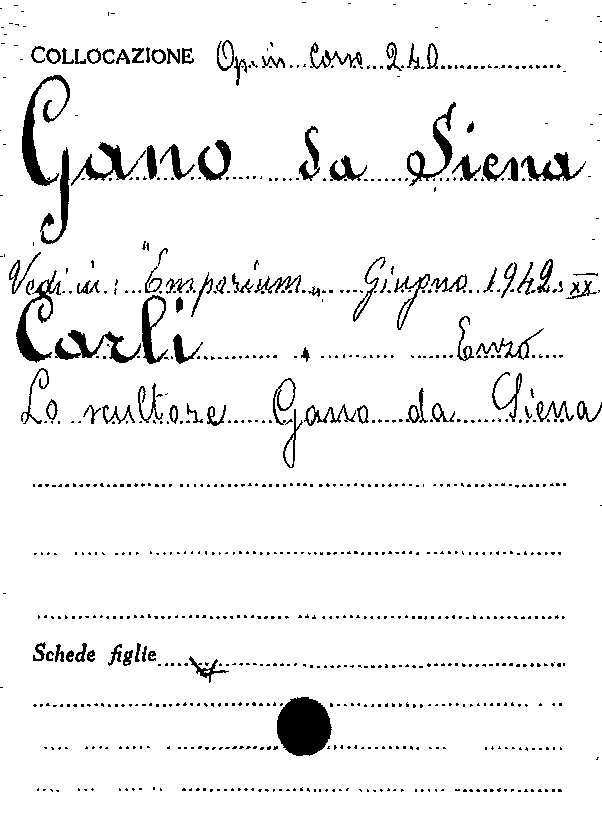 COLLOCAZIONE Op. in corso 240
Gano da Siena
Vedi in: "Emporium" Giugno 1942 XX
Carli Enzo
Lo scultore Gano da Siena
Schede figlie